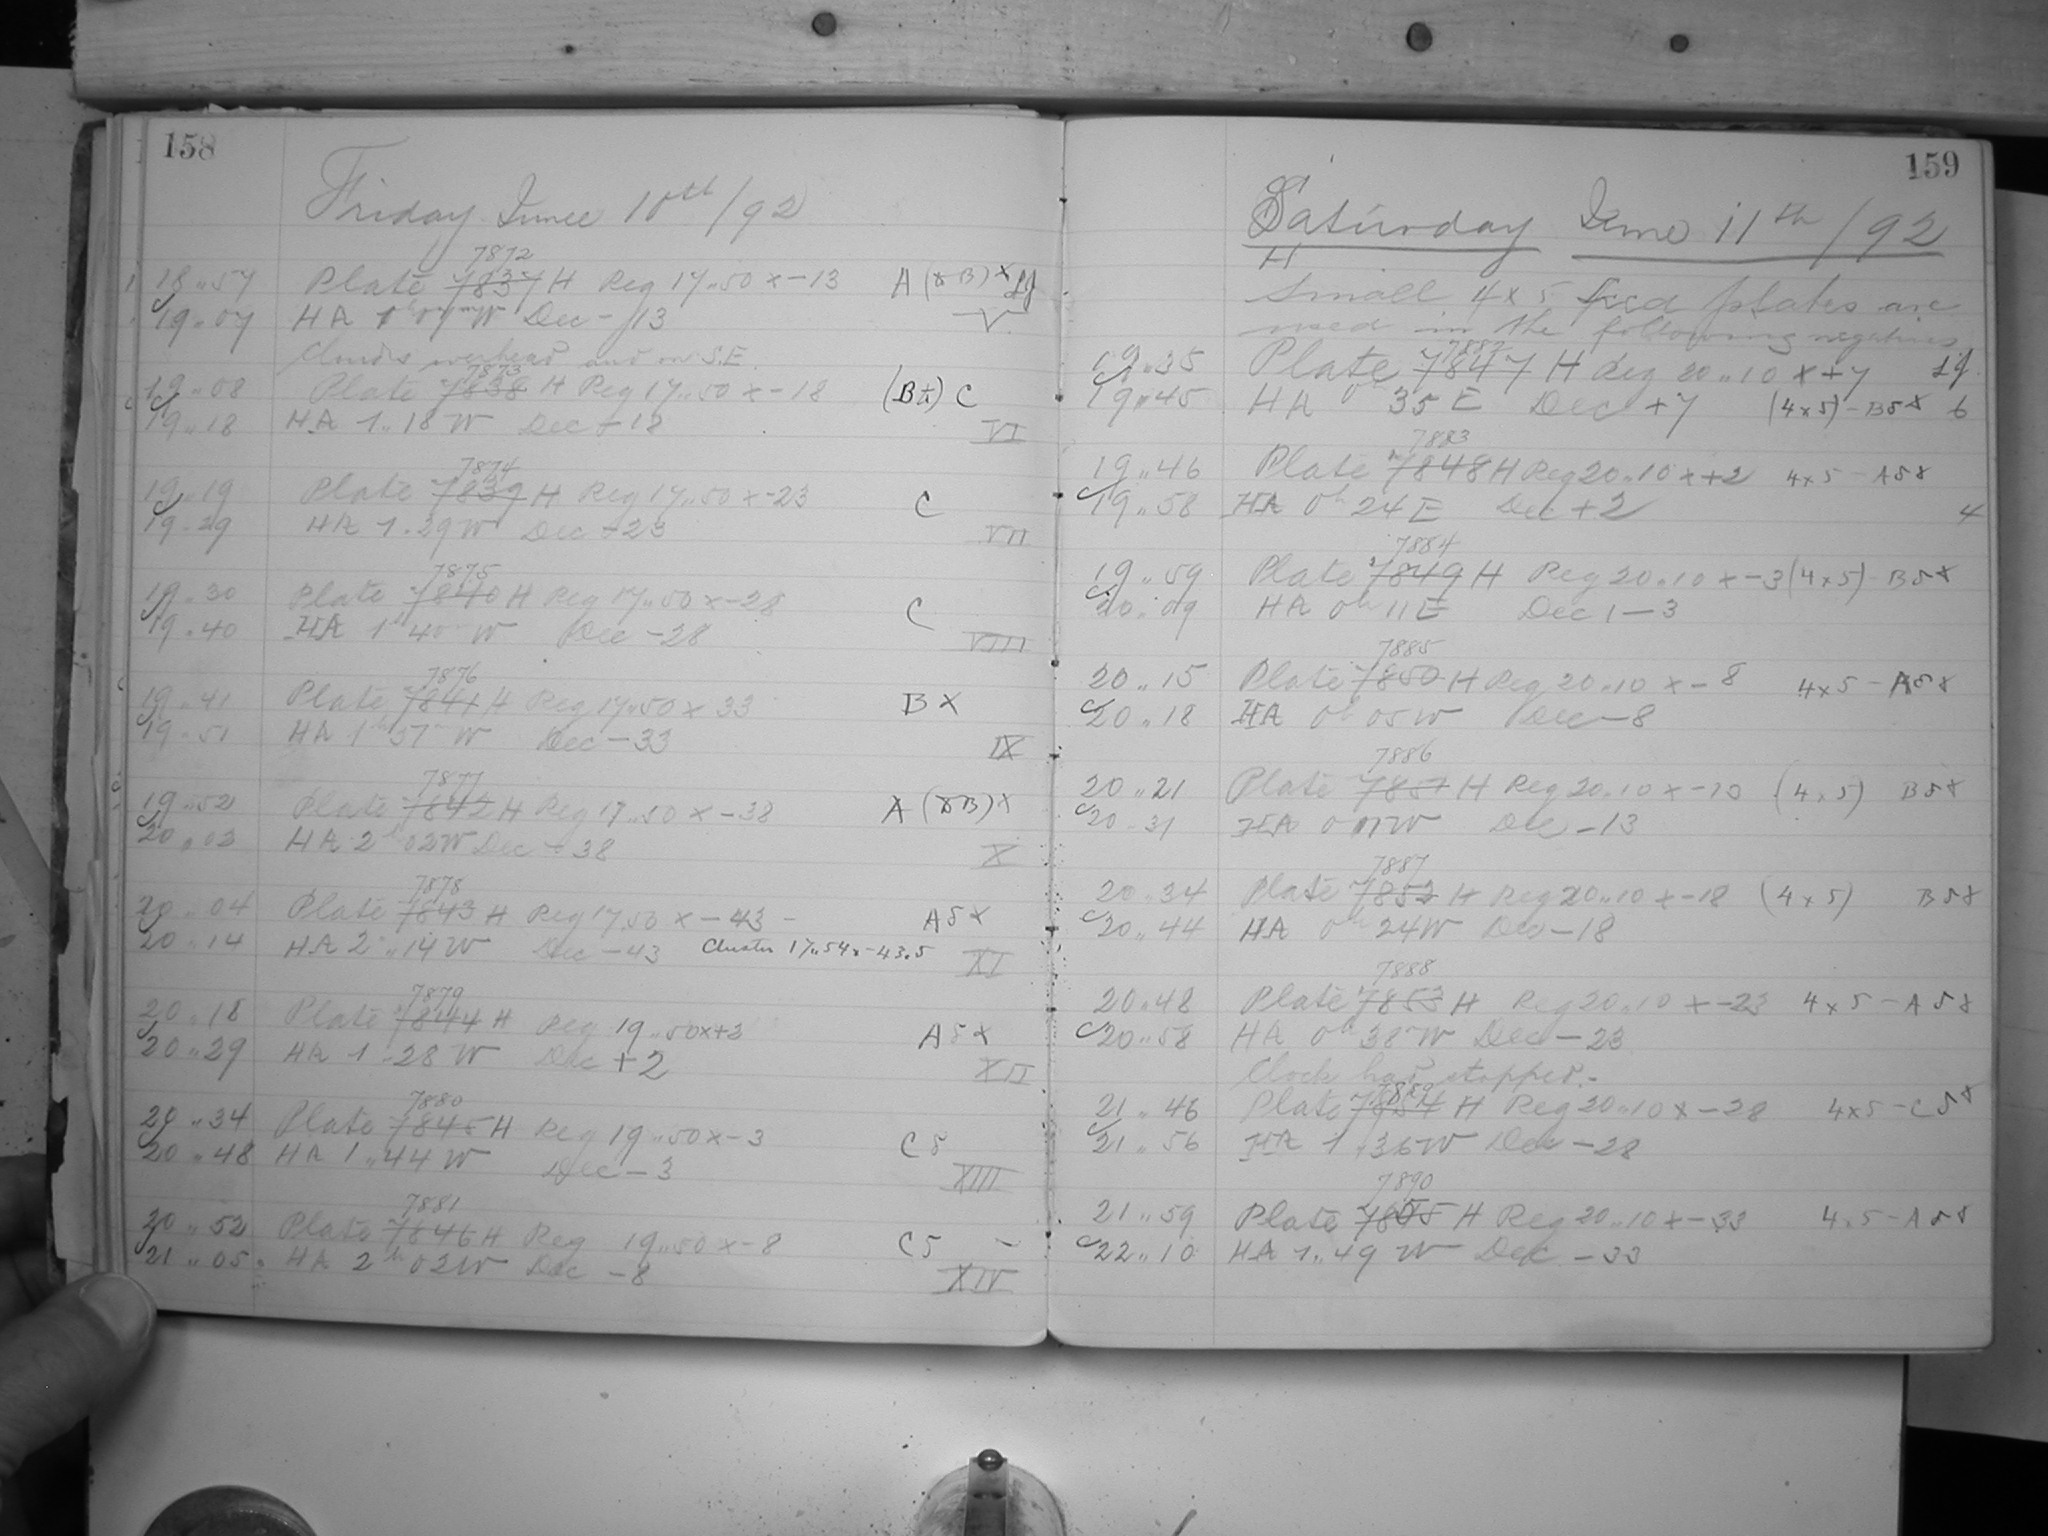 158
Friday June 10th/92
7872
18..57 Plate 7837 H Reg 17..50 x -13 A (xB)x
19..07 HA 1h 07m W Dec - 13 V
Clouds overhead and in S.E.
7873
19..08 Plate 7838 H Reg 17..50 x -18 (B±) C
19..18 HA 1..18 W Dec - 18 VI
7874
19..19 Plate 7839 H Reg 17..50 x -23 C
19..29 HA 1..29 W Dec - 23 VII
7875
19..30 Plate 7840 H Reg 17..50 x -28 C
19..40 HA 1h 40m W Dec - 28 VIII
7876
19..41 Plate 7841 H Reg 17..50 x 33 B x
19..51 HA 1h 51m W Dec - 33 IX
7877
19..52 Plate 7842 H Reg 17..50 x -38 A (xB)x
20..03 HA 2h 02 W Dec - 38 X
7878
20..04 Plate 7843 H Reg 17..50 x -43 - A5x
20..14 HA 2..14 W Dec - 43 Cluster 17..54 x -43.5 XI
7879
20..18 Plate 7844 H Reg 19..50 x +2 A5x
20..29 HA 1..28 W Dec + 2 XII
7880
20..34 Plate 7845 H Reg 19..50 x -3 C5
20..48 HA 1..44 W Dec - 3 XIII
7881
20..52 Plate 7846 H Reg 19..50 x -8 C5 -
21..05 HA 2h 02 W Dec - 8 XIV
159
Saturday June 11th/92
H
Small 4x5 plates are
used in the following negatives
7882
19..35 Plate 7847 H Reg 20..10 x +7
19..45 HA 0h 35 E Dec +7 (4x5) - B5x 6
7883
19..46 Plate 7848 H Reg 20..10 x +2 4x5 - A5x
19..58 HA 0h 24 E Dec +2 4
7884
19..59 Plate 7849 H Reg 20..10 x -3 (4x5) - B5x
20..09 HA 0h 11 E Dec - 3
7885
20..15 Plate 7850 H Reg 20..10 x - 8 4x5 - A5x
20..18 HA 0h 05 W Dec - 8
7886
20..21 Plate 7851 H Reg 20..10 x -13 (4x5) B5x
20..31 HA 0 11 W Dec - 13
7887
20..34 Plate 7852 H Reg 20..10 x -18 (4x5) B5x
20..44 HA 0h 24 W Dec - 18
7888
20..48 Plate 7853 H Reg 20..10 x -23 4x5 - A5x
20..58 HA 0h 38m W Dec - 23
Clock has stopped.-
7889
21..46 Plate 7854 H Reg 20..10 x -28 4x5 - C5x
21..56 HA 1..36 W Dec - 28
7890
21..59 Plate 7855 H Reg 20..10 x -33 4x5 - A5x
22..10 HA 1..49 W Dec - 33